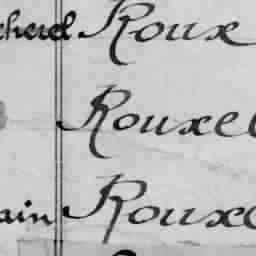 cherel Roux
Rouxel
ain Rouxe